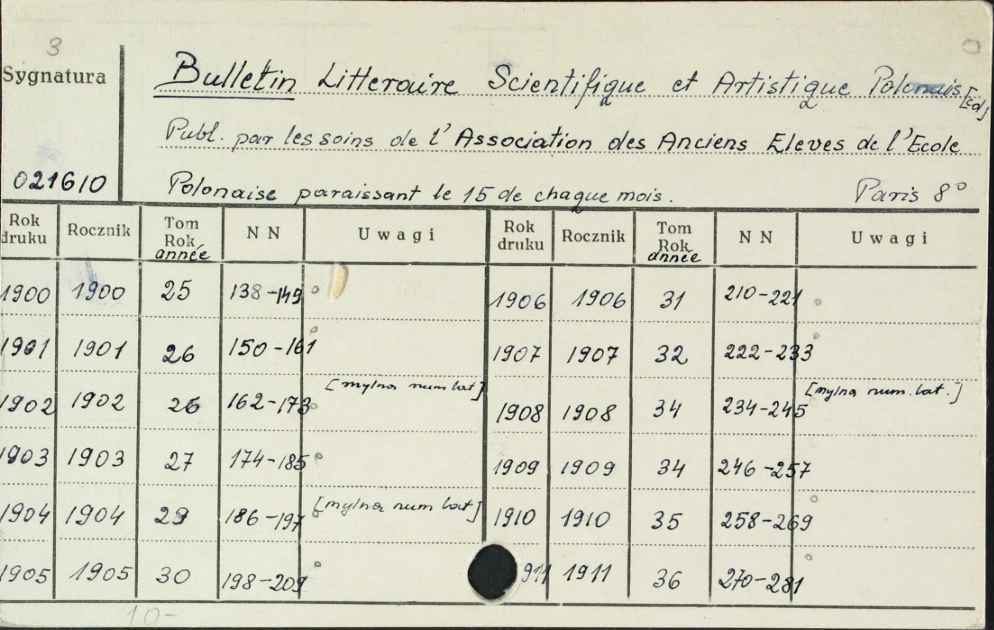 3
Sygnatura
Bulletin Litteraire Scientifique et Artistique Polonais
Publ. par les soins de l'Association des Anciens Eleves de l'Ecole
021610
Polonaise paraissant le 15 de chaque mois. Paris 8°
Rok druku Rocznik Tom Rok année N N Uwagi Rok druku Rocznik Tom Rok année N N Uwagi
1900 1900 25 138-149 1906 1906 31 210-221
1901 1901 26 150-161 1907 1907 32 222-233
1902 1902 26 162-173 [mylna num lat] 1908 1908 34 234-245 [mylna num. lat.]
1903 1903 27 174-185 1909 1909 34 246-257
1904 1904 29 186-197 [mylna num lat] 1910 1910 35 258-269
1905 1905 30 198-209 911 1911 36 270-281
10-